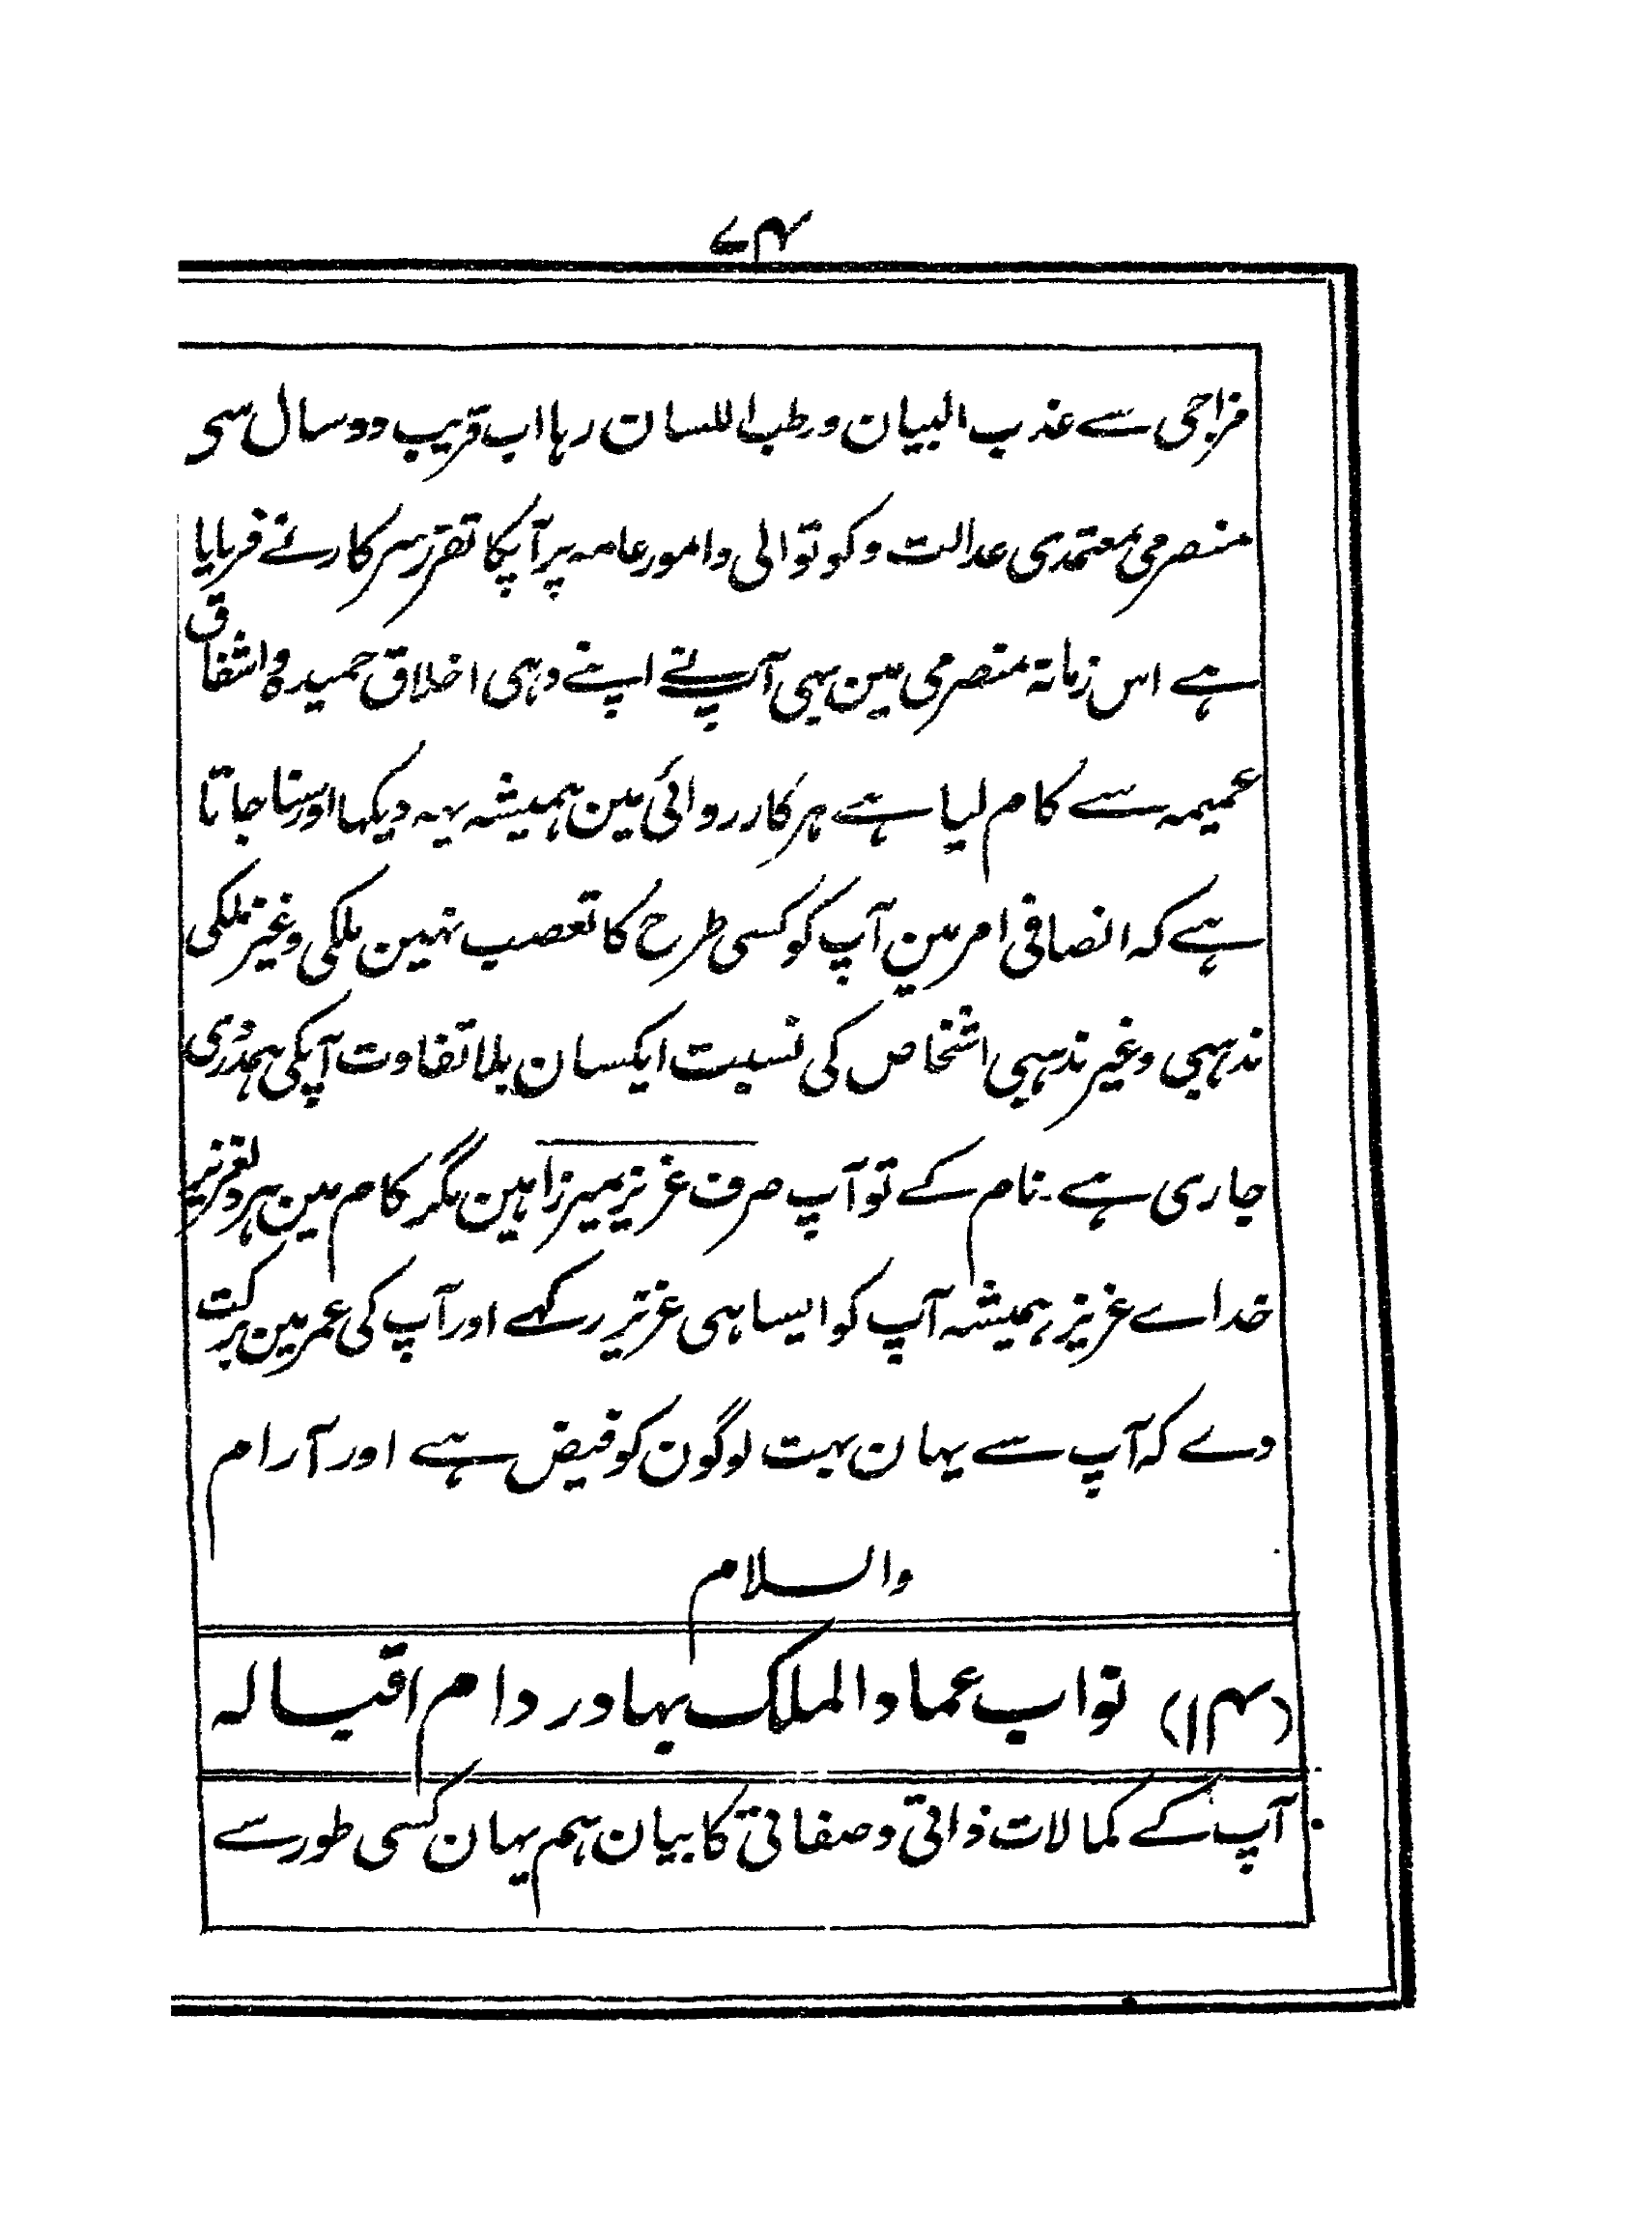 ۷۴
مزاجی سے عذب البیان ورطب اللسان رہا اب قریب دو سال سی
منصرمی معتمدی عدالت وکوتوالی وامور عامہ پر آپکا تقرر سرکار نے فرمایا
ہے اس زمانۂ منصرمی مین بہی آپ نے اپنے وہی اخلاق حمیدہ واشفاق
عمیمہ سے کام لیا ہے ہر کارروائی مین ہمیشہ یہہ دیکہا اور سنا جاتا
ہے کہ انصافی امر مین آپ کو کسی طرح کا تعصب نہین ملکی وغیر ملکی
مذہبی وغیر مذہبی اشخاص کی نسبت ایکسان بلا تفاوت آپکی ہمدردی
جاری ہے ۔ نام کے تو آپ صرف عزیز میرزا ہین مگر کام مین ہر دلعزیز
خداے عزیز ہمیشہ آپ کو ایسا ہی عزیز رکہے اور آپ کی عمر مین برکت
دے کہ آپ سے یہان بہت لوگون کو فیض ہے اور آرام
والسلام
(۱۴) نواب عماد الملک بہادر دام اقبالہ
آپ کے کمالات ذاتی وصفاتی کا بیان ہم یہان کسی طور سے